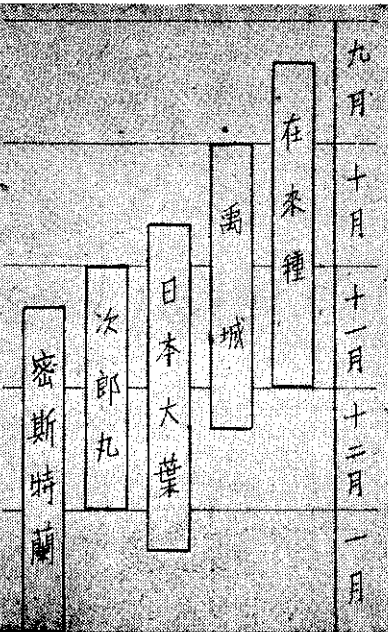 九月 十月 十一月 十二月 一月
在來種
禹城
日本大葉
次郎丸
密斯特蘭